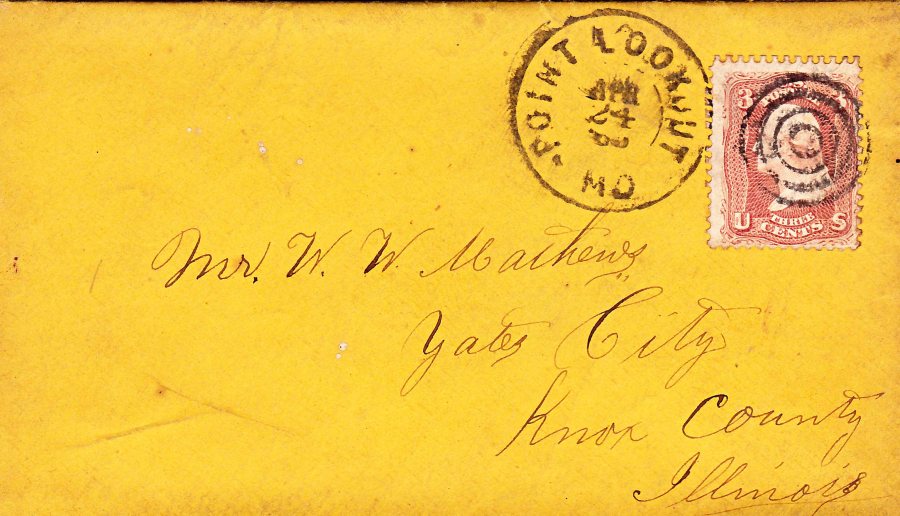 POINT LOOKOUT
APR
24
MD
3 3
U THREE S
CENTS
Mr. W. W. Mathews
Yates City
Knox County
Illinois